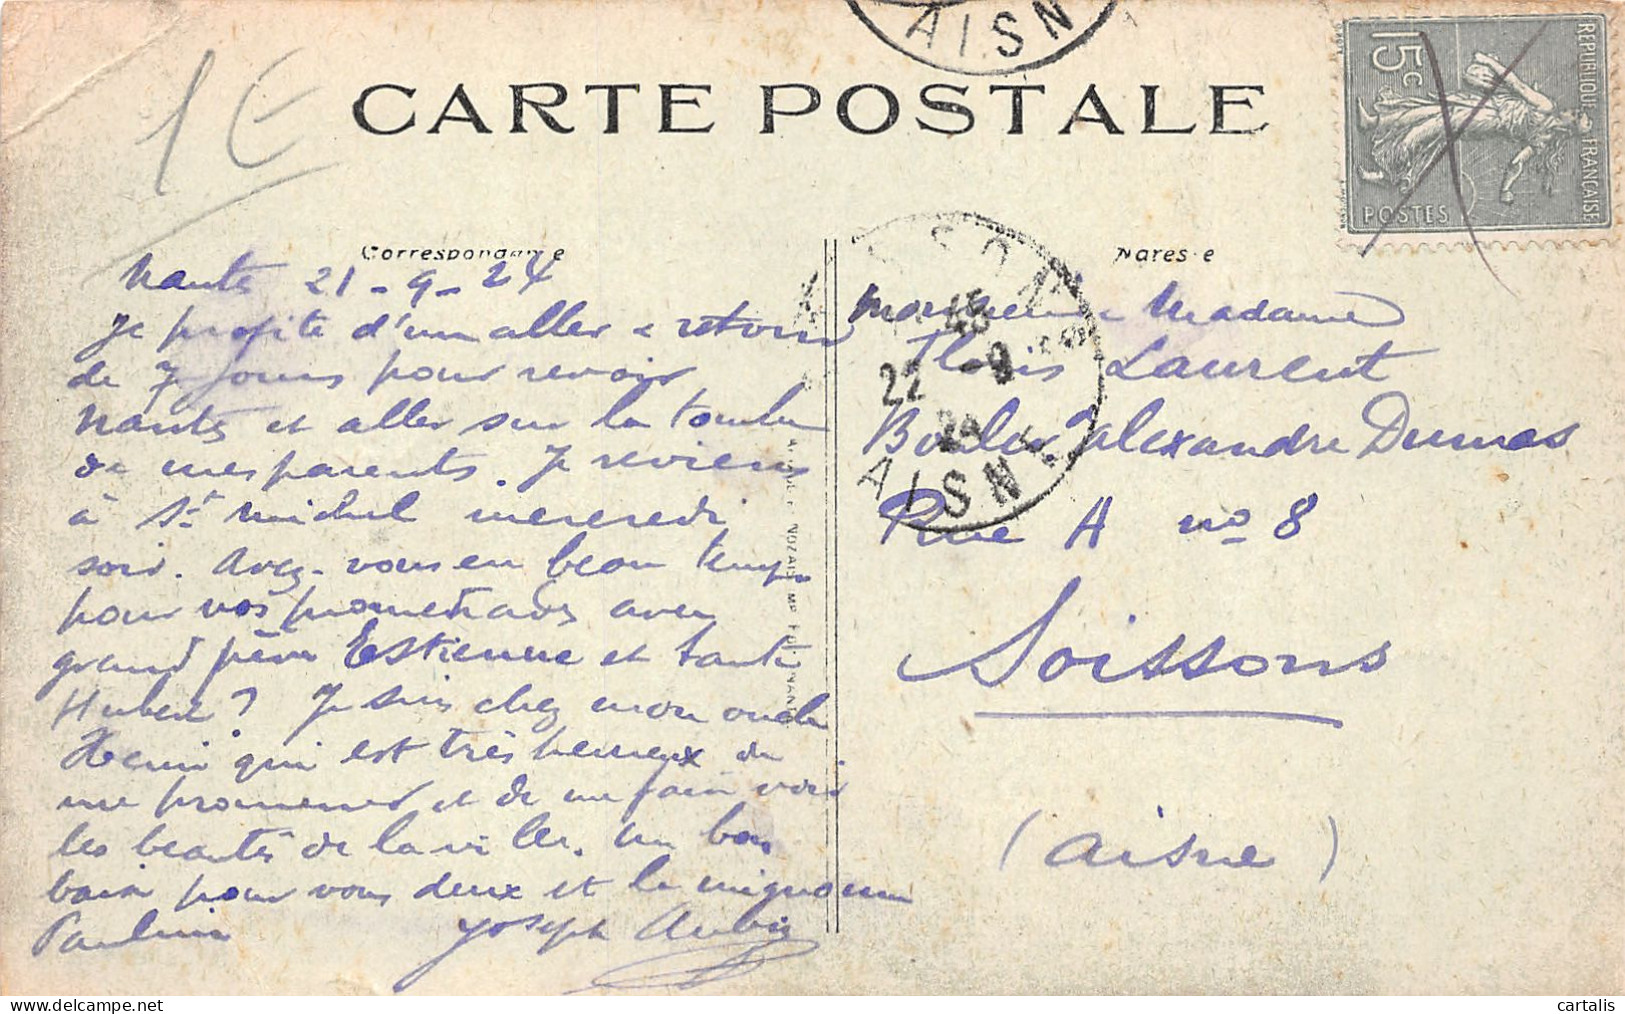 AISN
1E
CARTE POSTALE
REPUBLIQUE FRANÇAISE
15c
POSTES
Correspondance
Nantes 21-9-24
Je profite d'un aller & retour
de 7 jours pour revoir
Nantes et aller sur la tombe
de mes parents. Je reviens
à St Michel mercredi
soir. Avez-vous eu beau temps
pour vos promenades avec
grand père Estienne et tante
Hubert? Je suis chez mon oncle
Henri qui est très heureux de
me promener et de me faire voir
les beautés de la ville. Un bon
baiser pour vous deux et la mignonne
Pauline Joseph Aubin
Adresse
Monsieur & Madame
Louis Laurent
Boulevd Alexandre Dumas
Rue A no 8
Soissons
(Aisne)
22 9
AISNE
NOZAIS
cartalis.net